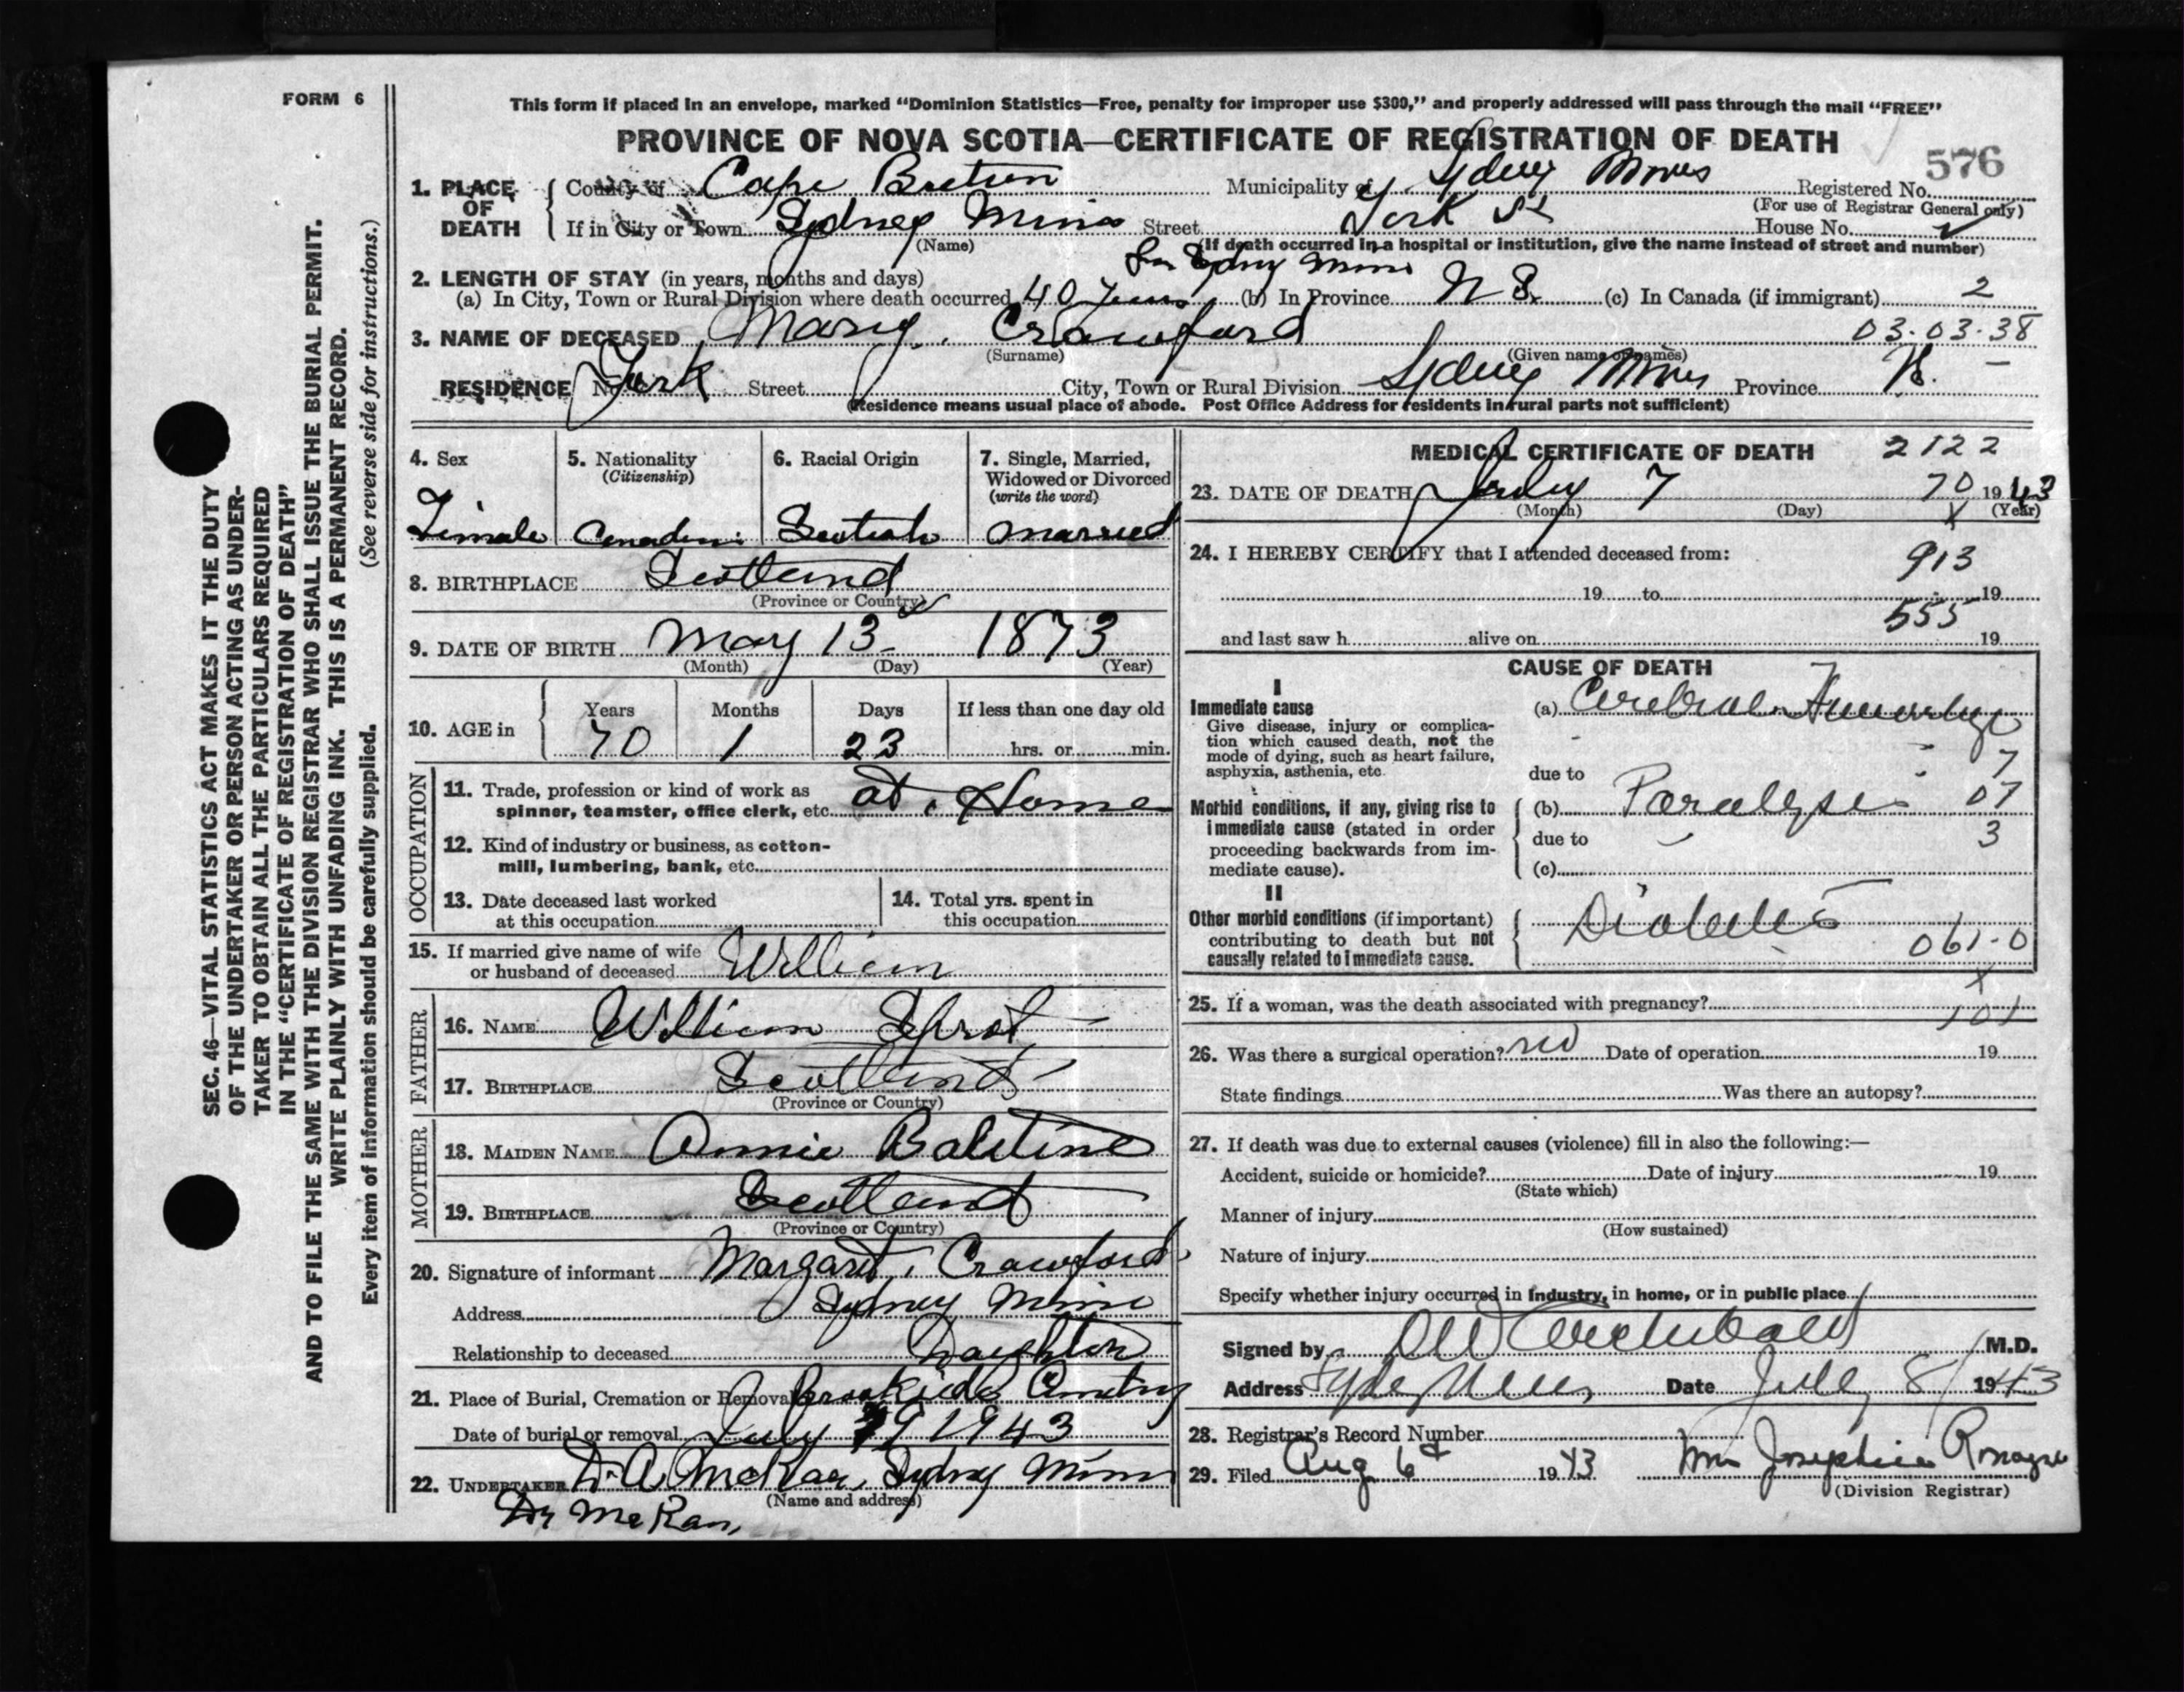 FORM 6
This form if placed in an envelope, marked “Dominion Statistics—Free, penalty for improper use $300,” and properly addressed will pass through the mail “FREE”
PROVINCE OF NOVA SCOTIA—CERTIFICATE OF REGISTRATION OF DEATH
576
1. PLACE OF DEATH
County of Cape Breton Municipality of Sydney Mines Registered No.
(For use of Registrar General only)
If in City or Town Sydney Mines Street York St House No.
(Name) (If death occurred in a hospital or institution, give the name instead of street and number)
Sydney Mines
2. LENGTH OF STAY (in years, months and days)
(a) In City, Town or Rural Division where death occurred 40 Years (b) In Province N S. (c) In Canada (if immigrant) 2
3. NAME OF DECEASED Mary. Crawford 03-03-38
(Surname) (Given name or names)
RESIDENCE No. York Street City, Town or Rural Division Sydney Mines Province
(Residence means usual place of abode. Post Office Address for residents in rural parts not sufficient)
4. Sex Female
5. Nationality (Citizenship)
6. Racial Origin
7. Single, Married, Widowed or Divorced (write the word) Married
8. BIRTHPLACE Scotland
(Province or Country)
9. DATE OF BIRTH May 13 1873
(Month) (Day) (Year)
10. AGE in
Years Months Days If less than one day old
70 1 23 hrs. or min.
OCCUPATION
11. Trade, profession or kind of work as spinner, teamster, office clerk, etc. at Home
12. Kind of industry or business, as cotton-mill, lumbering, bank, etc.
13. Date deceased last worked at this occupation
14. Total yrs. spent in this occupation
15. If married give name of wife or husband of deceased William
FATHER
16. NAME William Sprot
17. BIRTHPLACE Scotland
(Province or Country)
MOTHER
18. MAIDEN NAME Annie
19. BIRTHPLACE Scotland
(Province or Country)
20. Signature of informant Margaret Crawford
Address Sydney Mines
Relationship to deceased Daughter
21. Place of Burial, Cremation or Removal Brookside Cemetry
Date of burial or removal July 9 1943
22. UNDERTAKER D. A McRae, Sydney Mines
(Name and address)
MEDICAL CERTIFICATE OF DEATH 2122
23. DATE OF DEATH July 7 70 1943
(Month) (Day) (Year)
X
24. I HEREBY CERTIFY that I attended deceased from:
913
19 to 19
555
and last saw h alive on 19
CAUSE OF DEATH
I
Immediate cause
Give disease, injury or complication which caused death, not the mode of dying, such as heart failure, asphyxia, asthenia, etc.
(a) Cerebral
7
due to
Morbid conditions, if any, giving rise to immediate cause (stated in order proceeding backwards from immediate cause).
(b) Paralysis 07
due to 3
(c)
II
Other morbid conditions (if important) contributing to death but not causally related to immediate cause.
Diabetes
061-0
X
25. If a woman, was the death associated with pregnancy?
101
26. Was there a surgical operation? no Date of operation 19
State findings Was there an autopsy?
27. If death was due to external causes (violence) fill in also the following:—
Accident, suicide or homicide? Date of injury 19
(State which)
Manner of injury
(How sustained)
Nature of injury
Specify whether injury occurred in industry, in home, or in public place
Signed by Archibald M.D.
Address Date July 8/ 1943
28. Registrar's Record Number
29. Filed Aug 6 1943 Mrs Josephine
(Division Registrar)
SEC. 46—VITAL STATISTICS ACT MAKES IT THE DUTY
OF THE UNDERTAKER OR PERSON ACTING AS UNDER-
TAKER TO OBTAIN ALL THE PARTICULARS REQUIRED
IN THE “CERTIFICATE OF REGISTRATION OF DEATH”
AND TO FILE THE SAME WITH THE DIVISION REGISTRAR WHO SHALL ISSUE THE BURIAL PERMIT.
WRITE PLAINLY WITH UNFADING INK. THIS IS A PERMANENT RECORD.
Every item of information should be carefully supplied. (See reverse side for instructions.)